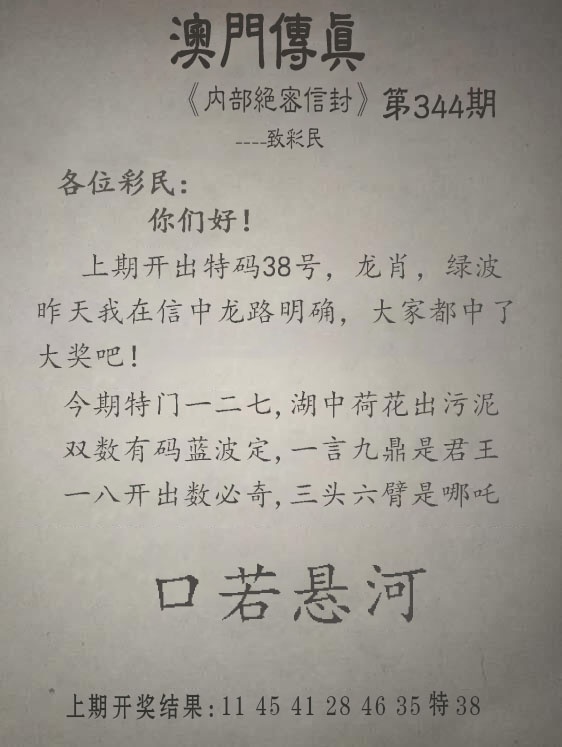 澳門傳眞
《内部絕密信封》第344期
----致彩民
各位彩民:
你们好!
上期开出特码38号,龙肖,绿波
昨天我在信中龙路明确,大家都中了
大奖吧!
今期特门一二七,湖中荷花出污泥
双数有码蓝波定,一言九鼎是君王
一八开出数必奇,三头六臂是哪吒
口若悬河
上期开奖结果:11 45 41 28 46 35 特 38